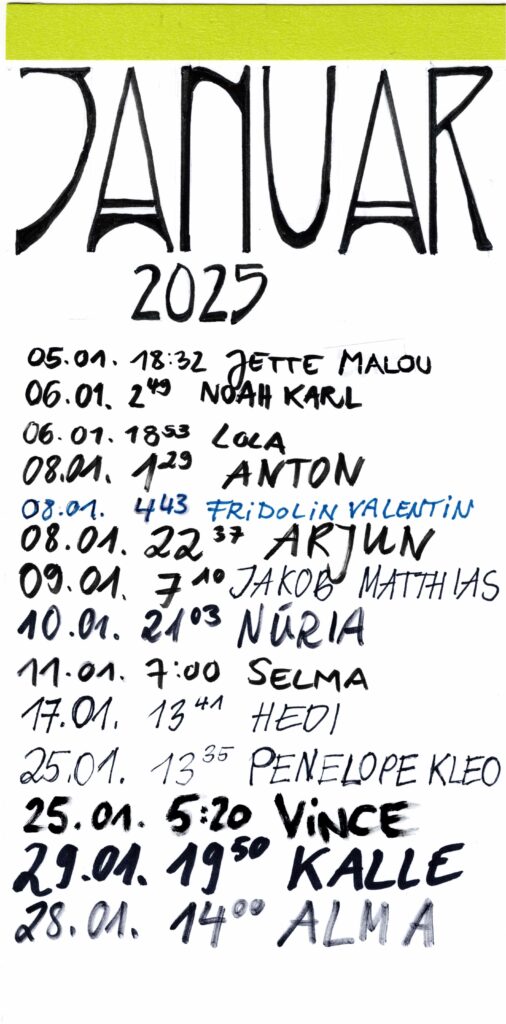 JANUAR
2025
05.01. 18:32 JETTE MALOU
06.01. 2⁴⁹ NOAH KARL
06.01. 18⁵³ LOLA
08.01. 1²⁹ ANTON
08.01. 4⁴³ FRiDOLiN VALENTiN
08.01. 22³⁷ ARJUN
09.01. 7¹⁰ JAKOB MATTHIAS
10.01. 21⁰³ NÚRIA
11.01. 7:00 SELMA
17.01. 13⁴¹ HEDI
25.01. 13³⁵ PENELOPE KLEO
25.01. 5:20 ViNCE
29.01. 19⁵⁰ KALLE
28.01. 14⁰⁰ ALMA